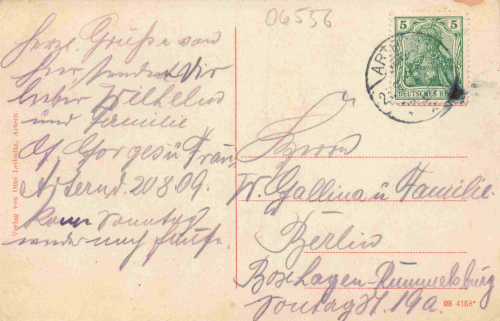 06556
Herzl. Grüße von
hier sendet Dir
lieber Wilhelm
und Familie
O. Gorges u Frau
Artern d. 20 8 09.
komm Sonntag
wieder nach Hause.
Verlag von Otto Leibnitz, Artern.
5 5
DEUTSCHES REICH
ARTERN
Herrn
W. Gallina u Familie
Berlin
Box Hagen-Rummelsburg
Sontag St. 19a.
08 4168*